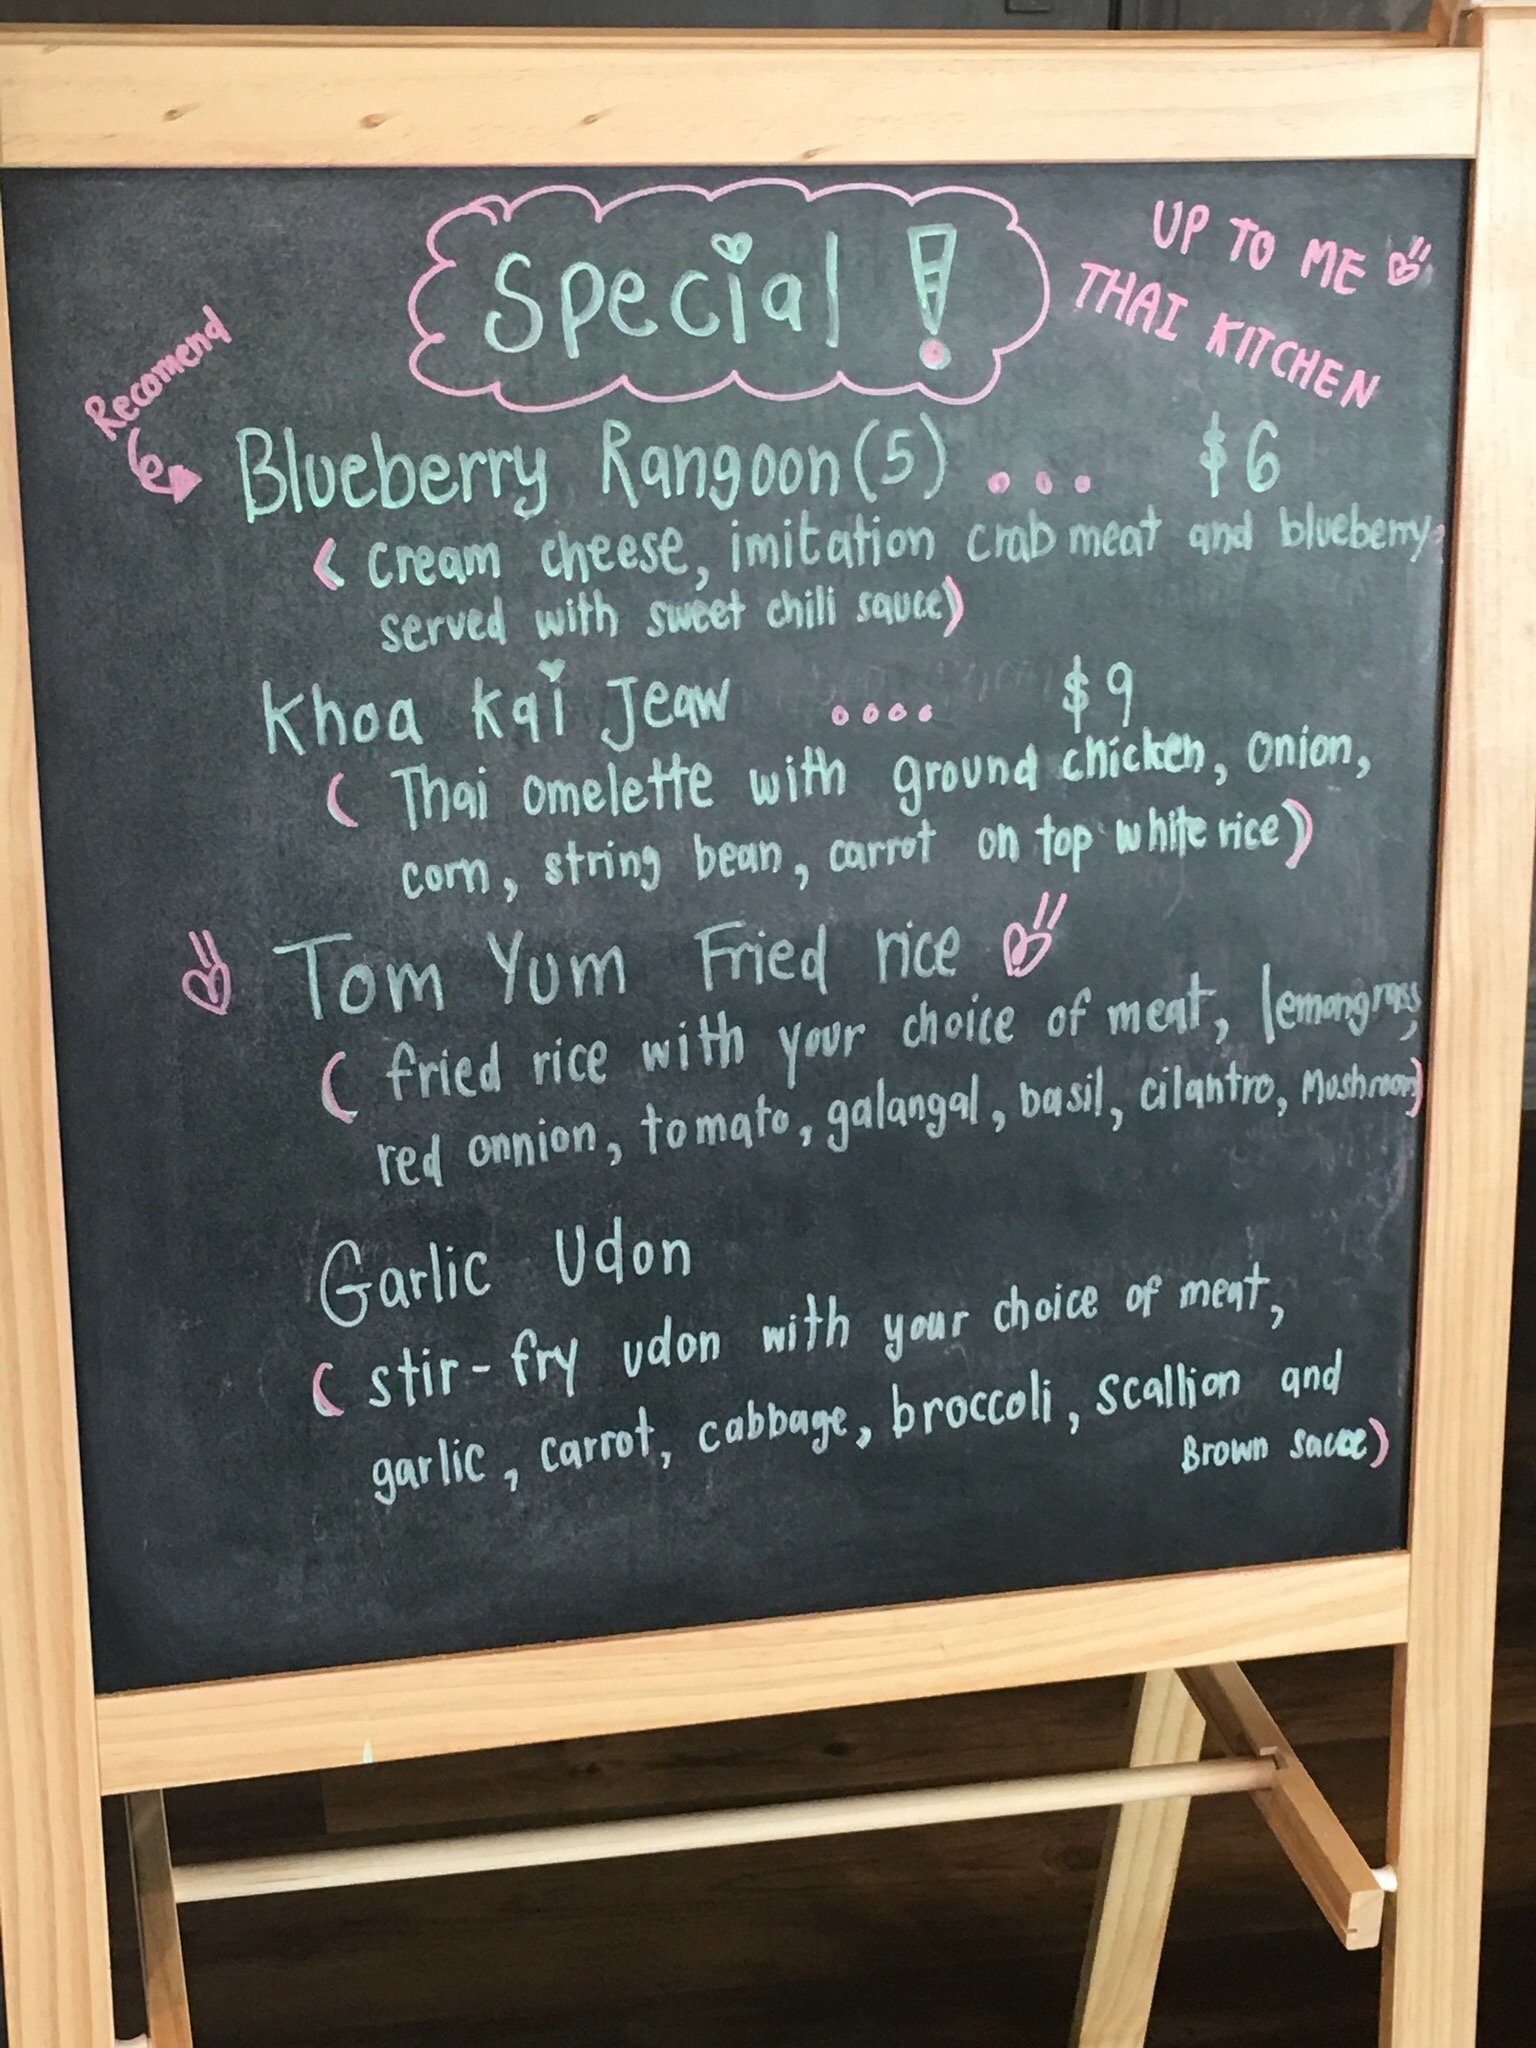 Special!
UP TO ME
THAI KITCHEN
Recomend
Blueberry Rangoon (5) ... $6
< cream cheese, imitation crab meat and blueberry
served with sweet chili sauce)
Khoa Kai Jeaw .... $9
( Thai omelette with ground chicken, onion,
corn, string bean, carrot on top white rice)
Tom Yum Fried rice
( fried rice with your choice of meat, lemongrass,
red onnion, tomato, galangal, basil, cilantro, Mushroom)
Garlic Udon
( stir-fry udon with your choice of meat,
garlic, carrot, cabbage, broccoli, scallion and
Brown sauce)